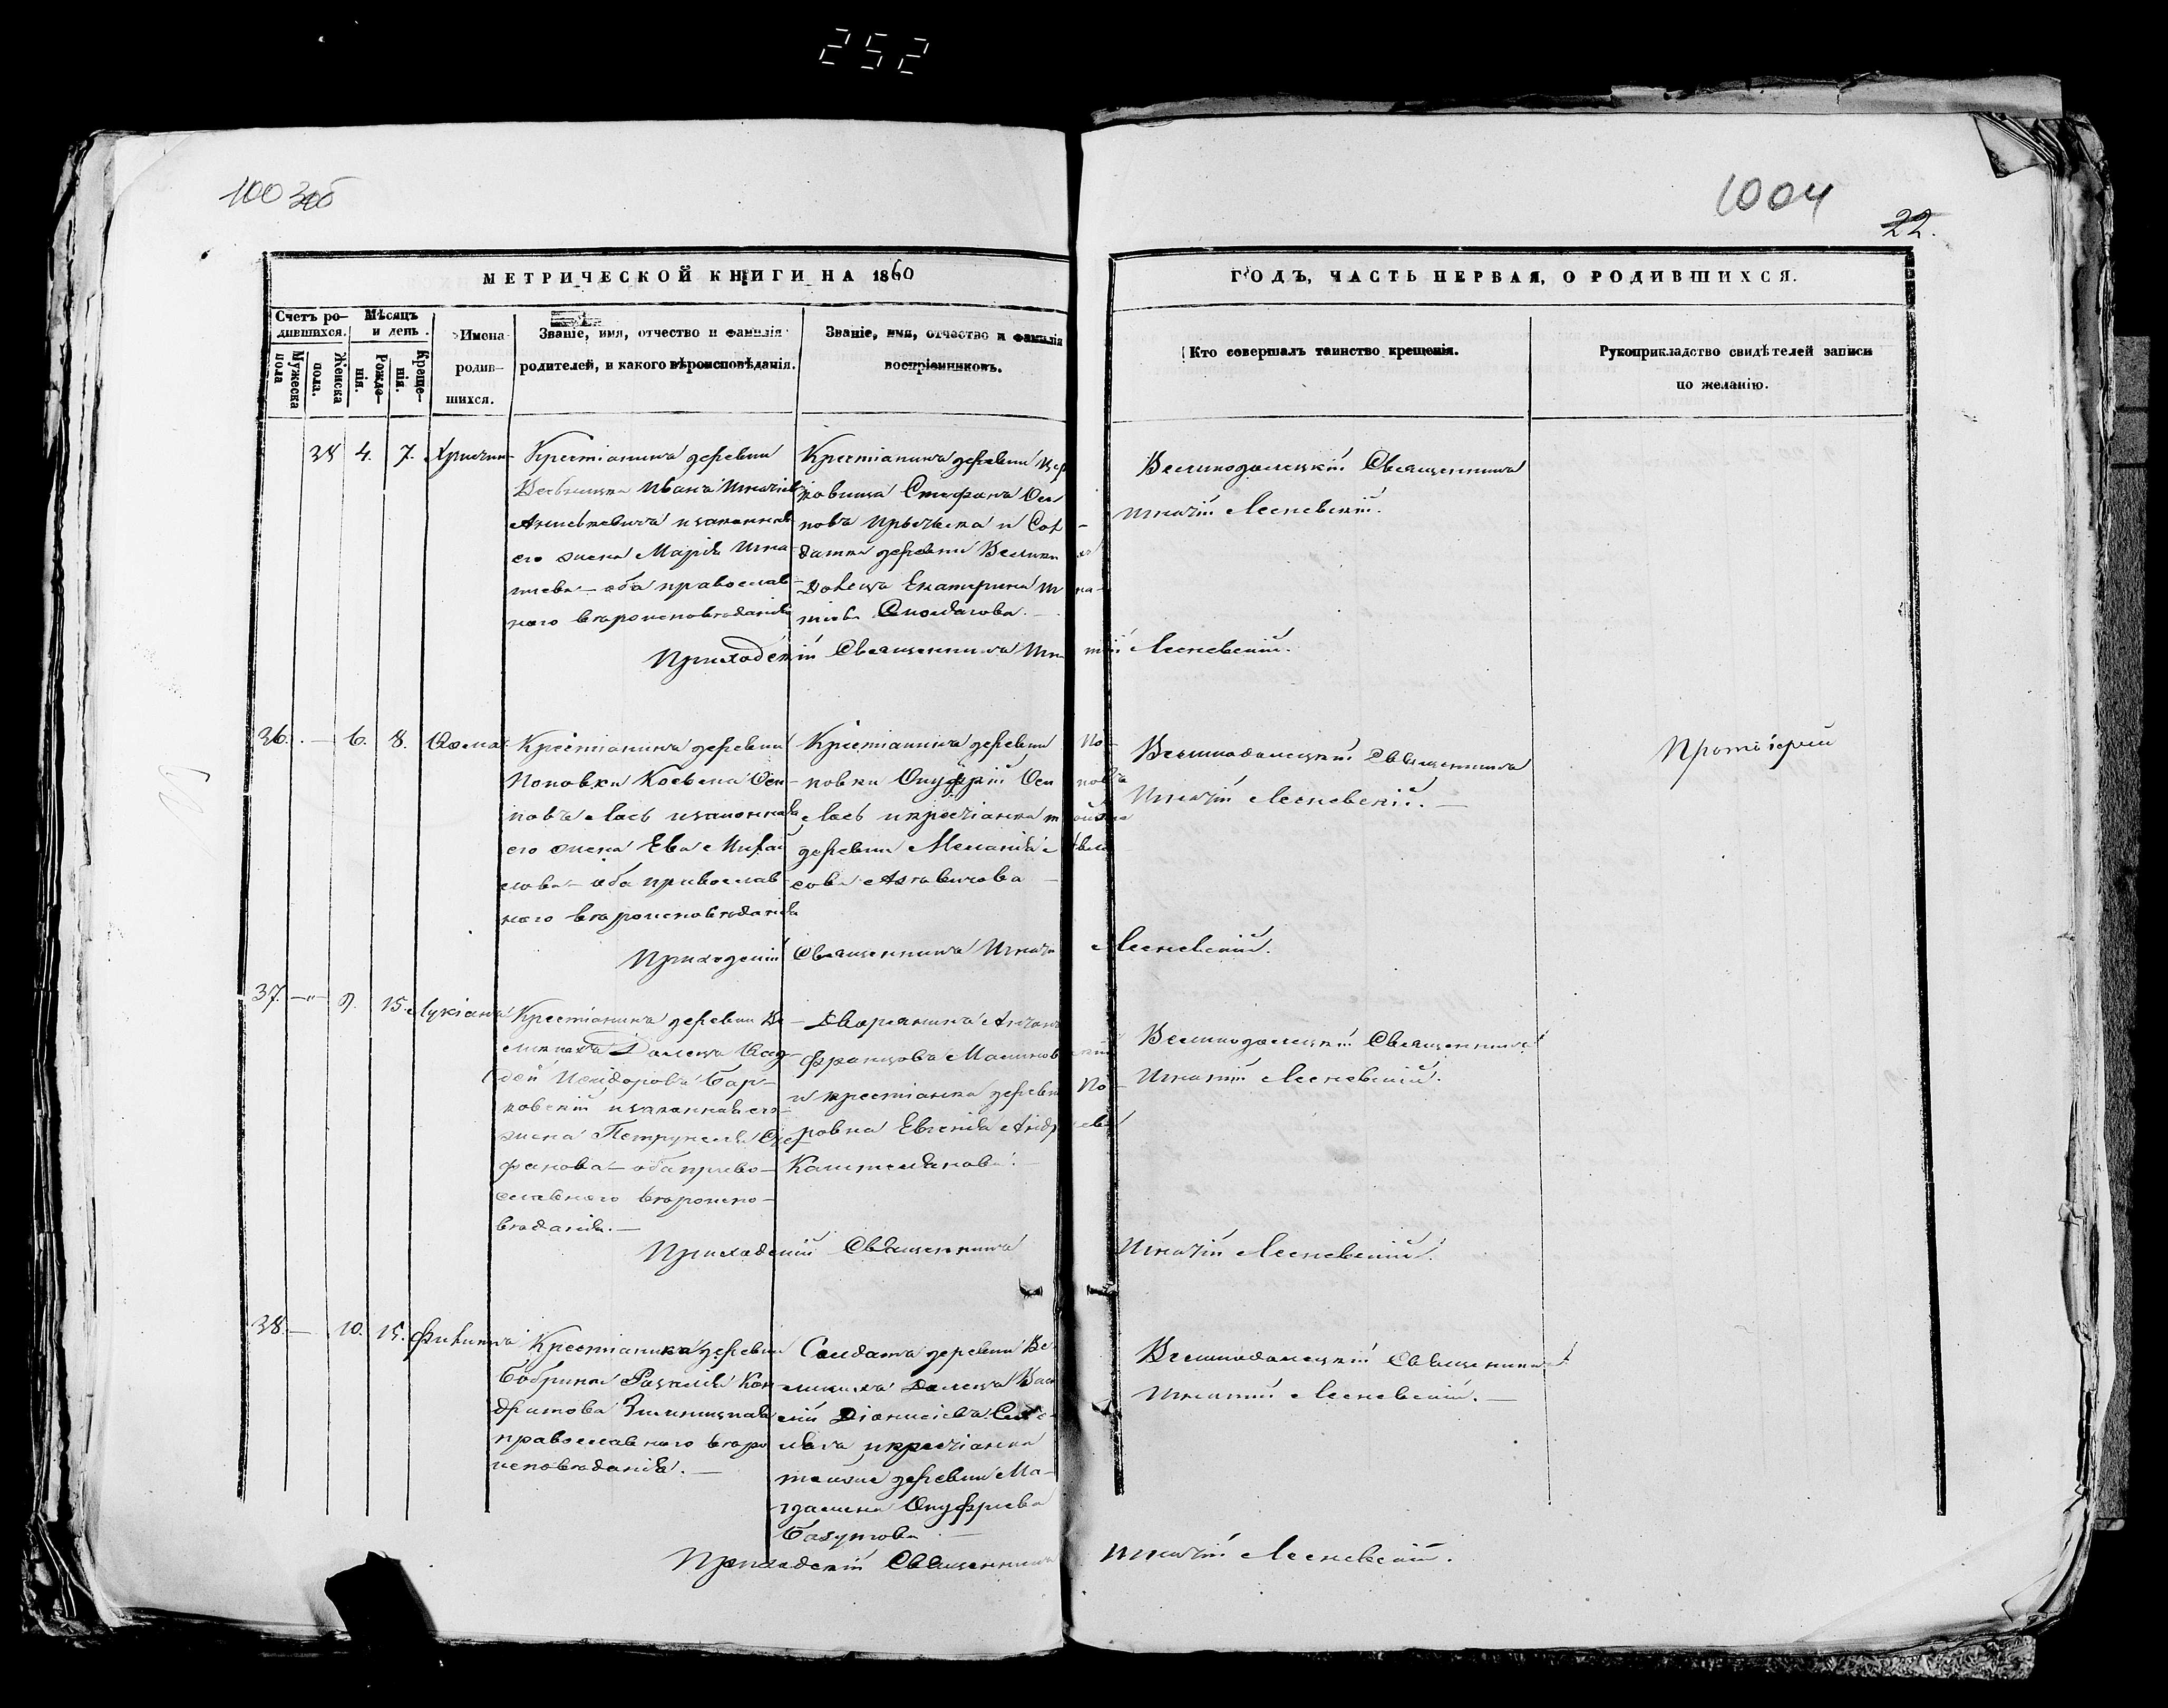 252
1003об
1004
22.
МЕТРИЧЕСКОЙ КНИГИ НА 1860
ГОДЪ, ЧАСТЬ ПЕРВАЯ, О РОДИВШИХСЯ.
Счетъ ро-
дившихся.
Мужеска
пола
Женска
пола.
Мѣсяцъ
и день.
Рожде-
нія.
Креще-
нія.
Имена
родив-
шихся.
Званіе, имя, отчество и фамилія
родителей, и какого вѣроисповѣданія.
Званіе, имя, отчество и фамилія
воспріемниковъ.
Кто совершалъ таинство крещенія.
Рукоприкладство свидѣтелей записи
по желанію.
4. 7.
Крестьянинъ деревни
Иванъ
и законная
его жена Марія Игна-
тіева — оба православ-
наго вѣроисповѣданія
Крестьянинъ деревни
Стефанъ Оси-
повъ и Сол-
датка деревни Великихъ
Долецъ Екатерина Игна-
тіева
Великодолецкій Священникъ
Игнатій Лесневскій.
Приходскій Священникъ Игнатій Лесневскій.
36. — 6. 8. Ѳома
Крестьянинъ деревни
Поповки Косьма Оси-
повъ Лась и законная
его жена Ева Михай-
лова — оба православ-
наго вѣроисповѣданія
Крестьянинъ деревни По-
повки Онуфрій Осиповъ
Лась и крестьянка тойже
деревни Меланія
Великодолецкій Священникъ
Игнатій Лесневскій. —
Протоіерей
Приходскій Священникъ Игнатій Лесневскій.
37. —„— 9. 15. Лукіанъ
Крестьянинъ деревни Ве-
ликихъ Долецъ Ѳад-
дей Исидоровъ Бар-
ковскій и законная его
жена Петрунеля Сте-
фанова — оба право-
славнаго вѣроиспо-
вѣданія. —
Дворянинъ Антонъ
Францовъ Малиновскій
и крестьянка деревни По-
ровна Евгенія Андреева
Великодолецкій Священникъ
Игнатій Лесневскій.
Приходскій Священникъ Игнатій Лесневскій.
38. — 10. 15. Филиппъ
Крестьянка деревни
Розалія Кон-
дратова
православнаго вѣро-
исповѣданія. —
Солдатъ деревни Ве-
ликихъ Долецъ Васи-
лій Діонисіевъ
и крестьянка
тойже деревни Ма-
гдалена Онуфріева
Великодолецкій Священникъ
Игнатій Лесневскій. —
Приходскій Священникъ Игнатій Лесневскій.